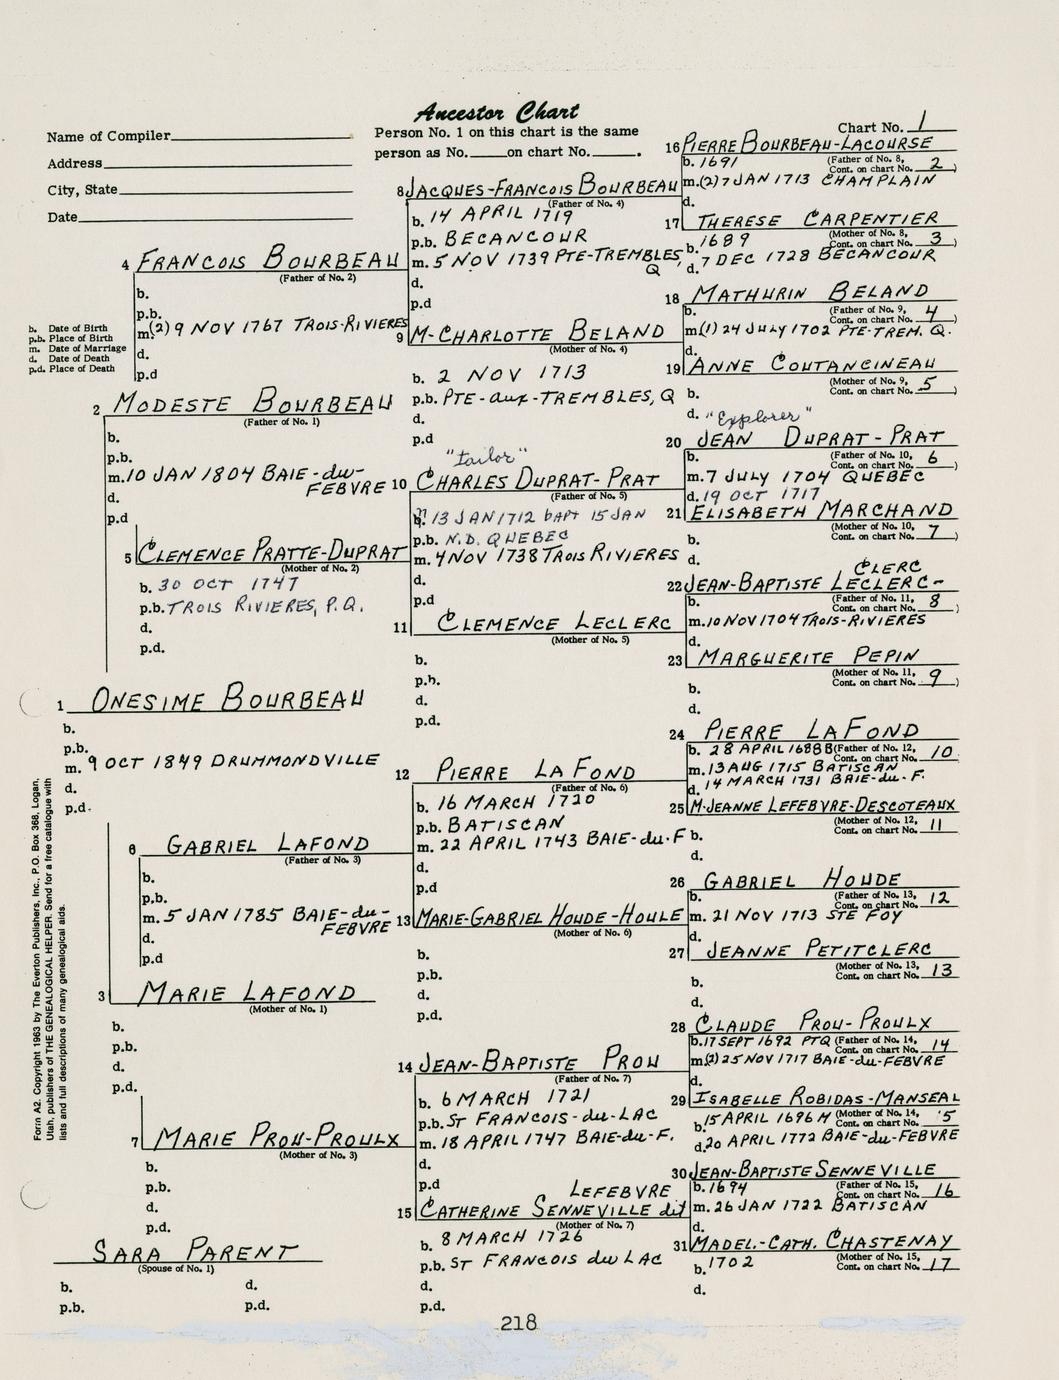 Ancestor Chart
Name of Compiler
Person No. 1 on this chart is the same
person as No. on chart No. .
Chart No. 1
Address
City, State
Date
b. Date of Birth
p.b. Place of Birth
m. Date of Marriage
d. Date of Death
p.d. Place of Death
16 PIERRE BOURBEAU-LACOURSE
(Father of No. 8,
Cont. on chart No. 2)
b. 1691
m.(2) 7 JAN 1713 CHAMPLAIN
d.
8 JACQUES-FRANCOIS BOURBEAU
(Father of No. 4)
b. 14 APRIL 1719
p.b. BECANCOUR
m. 5 NOV 1739 PTE-TREMBLES,
Q
d.
p.d
17 THERESE CARPENTIER
(Mother of No. 8,
Cont. on chart No. 3)
b. 1689
d. 7 DEC 1728 BECANCOUR
4 FRANCOIS BOURBEAU
(Father of No. 2)
b.
p.b.
m.(2) 9 NOV 1767 TROIS-RIVIERES
d.
p.d
18 MATHURIN BELAND
(Father of No. 9,
Cont. on chart No. 4)
m(1) 24 JULY 1702 PTE-TREM. Q.
d.
9 M-CHARLOTTE BELAND
(Mother of No. 4)
b. 2 NOV 1713
p.b. PTE-aux-TREMBLES, Q
d.
p.d
19 ANNE COUTANCINEAU
(Mother of No. 9,
Cont. on chart No. 5)
b.
d.
2 MODESTE BOURBEAU
(Father of No. 1)
b.
p.b.
m. 10 JAN 1804 BAIE-du-
FEBVRE
d.
p.d
"Explorer"
20 JEAN DUPRAT-PRAT
(Father of No. 10,
Cont. on chart No. 6)
b.
m. 7 JULY 1704 QUEBEC
d. 19 OCT 1717
"tailor"
10 CHARLES DUPRAT-PRAT
(Father of No. 5)
b. 13 JAN 1712 bapt 15 JAN
p.b. N.D. QUEBEC
m. 4 NOV 1738 TROIS RIVIERES
d.
p.d
21 ELISABETH MARCHAND
(Mother of No. 10,
Cont. on chart No. 7)
b.
d.
5 CLEMENCE PRATTE-DUPRAT
(Mother of No. 2)
b. 30 OCT 1747
p.b. TROIS RIVIERES, P.Q.
d.
p.d.
CLERC
22 JEAN-BAPTISTE LECLERC-
(Father of No. 11,
Cont. on chart No. 8)
b.
m. 10 NOV 1704 TROIS-RIVIERES
d.
11 CLEMENCE LECLERC
(Mother of No. 5)
b.
p.b.
d.
p.d.
23 MARGUERITE PEPIN
(Mother of No. 11,
Cont. on chart No. 9)
b.
d.
1 ONESIME BOURBEAU
b.
p.b.
m. 9 OCT 1849 DRUMMONDVILLE
d.
p.d.
24 PIERRE LAFOND
(Father of No. 12,
Cont. on chart No. 10
b. 28 APRIL 1688 B
m. 13 AUG 1715 BATISCAN
d. 14 MARCH 1731 BAIE-du-F.
12 PIERRE LA FOND
(Father of No. 6)
b. 16 MARCH 1720
p.b. BATISCAN
m. 22 APRIL 1743 BAIE-du-F
d.
p.d
25 M-JEANNE LEFEBVRE-DESCOTEAUX
(Mother of No. 12,
Cont. on chart No. 11
b.
d.
6 GABRIEL LAFOND
(Father of No. 3)
b.
p.b.
m. 5 JAN 1785 BAIE-du-
FEBVRE
d.
p.d
26 GABRIEL HOUDE
(Father of No. 13,
Cont. on chart No. 12
b.
m. 21 NOV 1713 STE FOY
d.
13 MARIE-GABRIEL HOUDE-HOULE
(Mother of No. 6)
b.
p.b.
d.
p.d.
27 JEANNE PETITCLERC
(Mother of No. 13,
Cont. on chart No. 13
b.
d.
3 MARIE LAFOND
(Mother of No. 1)
b.
p.b.
d.
p.d.
28 CLAUDE PROU-PROULX
(Father of No. 14,
Cont. on chart No. 14
b. 17 SEPT 1692 PTQ
m(2) 25 NOV 1717 BAIE-du-FEBVRE
d.
14 JEAN-BAPTISTE PROU
(Father of No. 7)
b. 6 MARCH 1721
p.b. ST FRANCOIS-du-LAC
m. 18 APRIL 1747 BAIE-du-F.
d.
p.d
29 ISABELLE ROBIDAS-MANSEAL
(Mother of No. 14,
Cont. on chart No. 5
b. 15 APRIL 1696 M
d. 20 APRIL 1772 BAIE-du-FEBVRE
7 MARIE PROU-PROULX
(Mother of No. 3)
b.
p.b.
d.
p.d.
30 JEAN-BAPTISTE SENNEVILLE
(Father of No. 15,
Cont. on chart No. 16
b. 1694
m. 26 JAN 1722 BATISCAN
d.
LEFEBVRE
15 CATHERINE SENNEVILLE dit
(Mother of No. 7)
b. 8 MARCH 1726
p.b. ST FRANCOIS du LAC
d.
p.d.
31 MADEL.-CATH. CHASTENAY
(Mother of No. 15,
Cont. on chart No. 17
b. 1702
d.
SARA PARENT
(Spouse of No. 1)
b. d.
p.b. p.d.
Form A2. Copyright 1963 by The Everton Publishers, Inc., P.O. Box 368, Logan,
Utah, publishers of THE GENEALOGICAL HELPER. Send for a free catalogue with
lists and full descriptions of many genealogical aids.
218